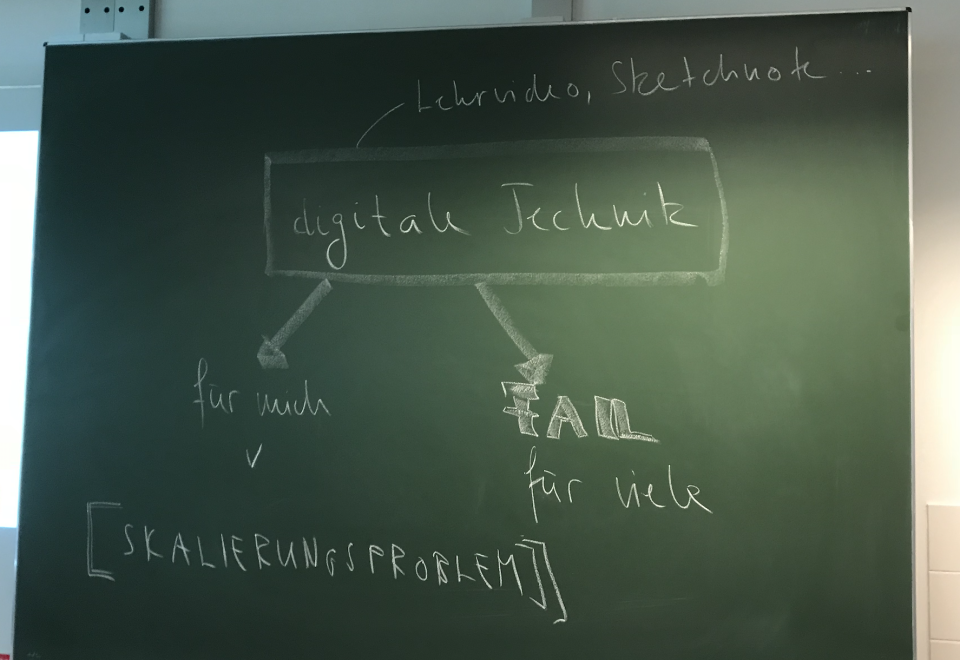 Lehrvideo, Sketchnote ...
digitale Technik
für mich
✓
FAIL
für viele
[SKALIERUNGSPROBLEM]